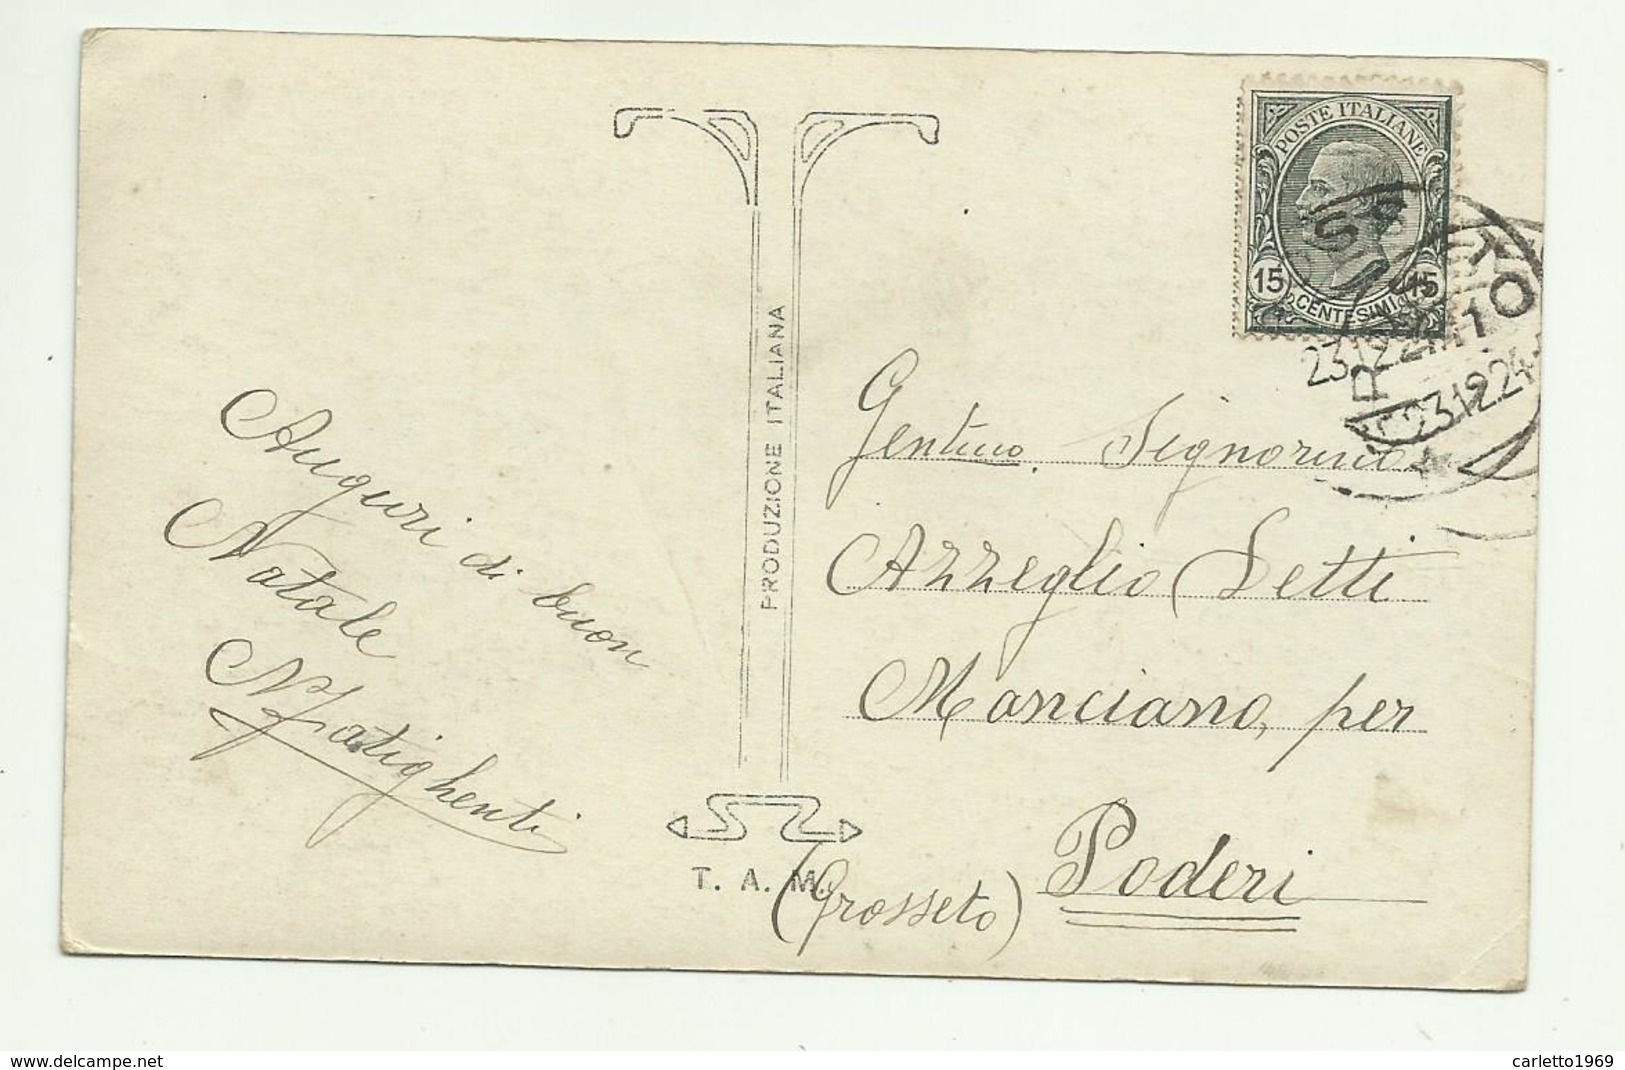 POSTE ITALIANE
15 CENTESIMI 15
23.12.24
23.12.24
PRODUZIONE ITALIANA
Auguri di buon
Natale
Gentmo. Signorino
Azzeglio Setti
Manciano, per
Poderi
(Grosseto)
T. A. M.
delcampe.net
carletto1969